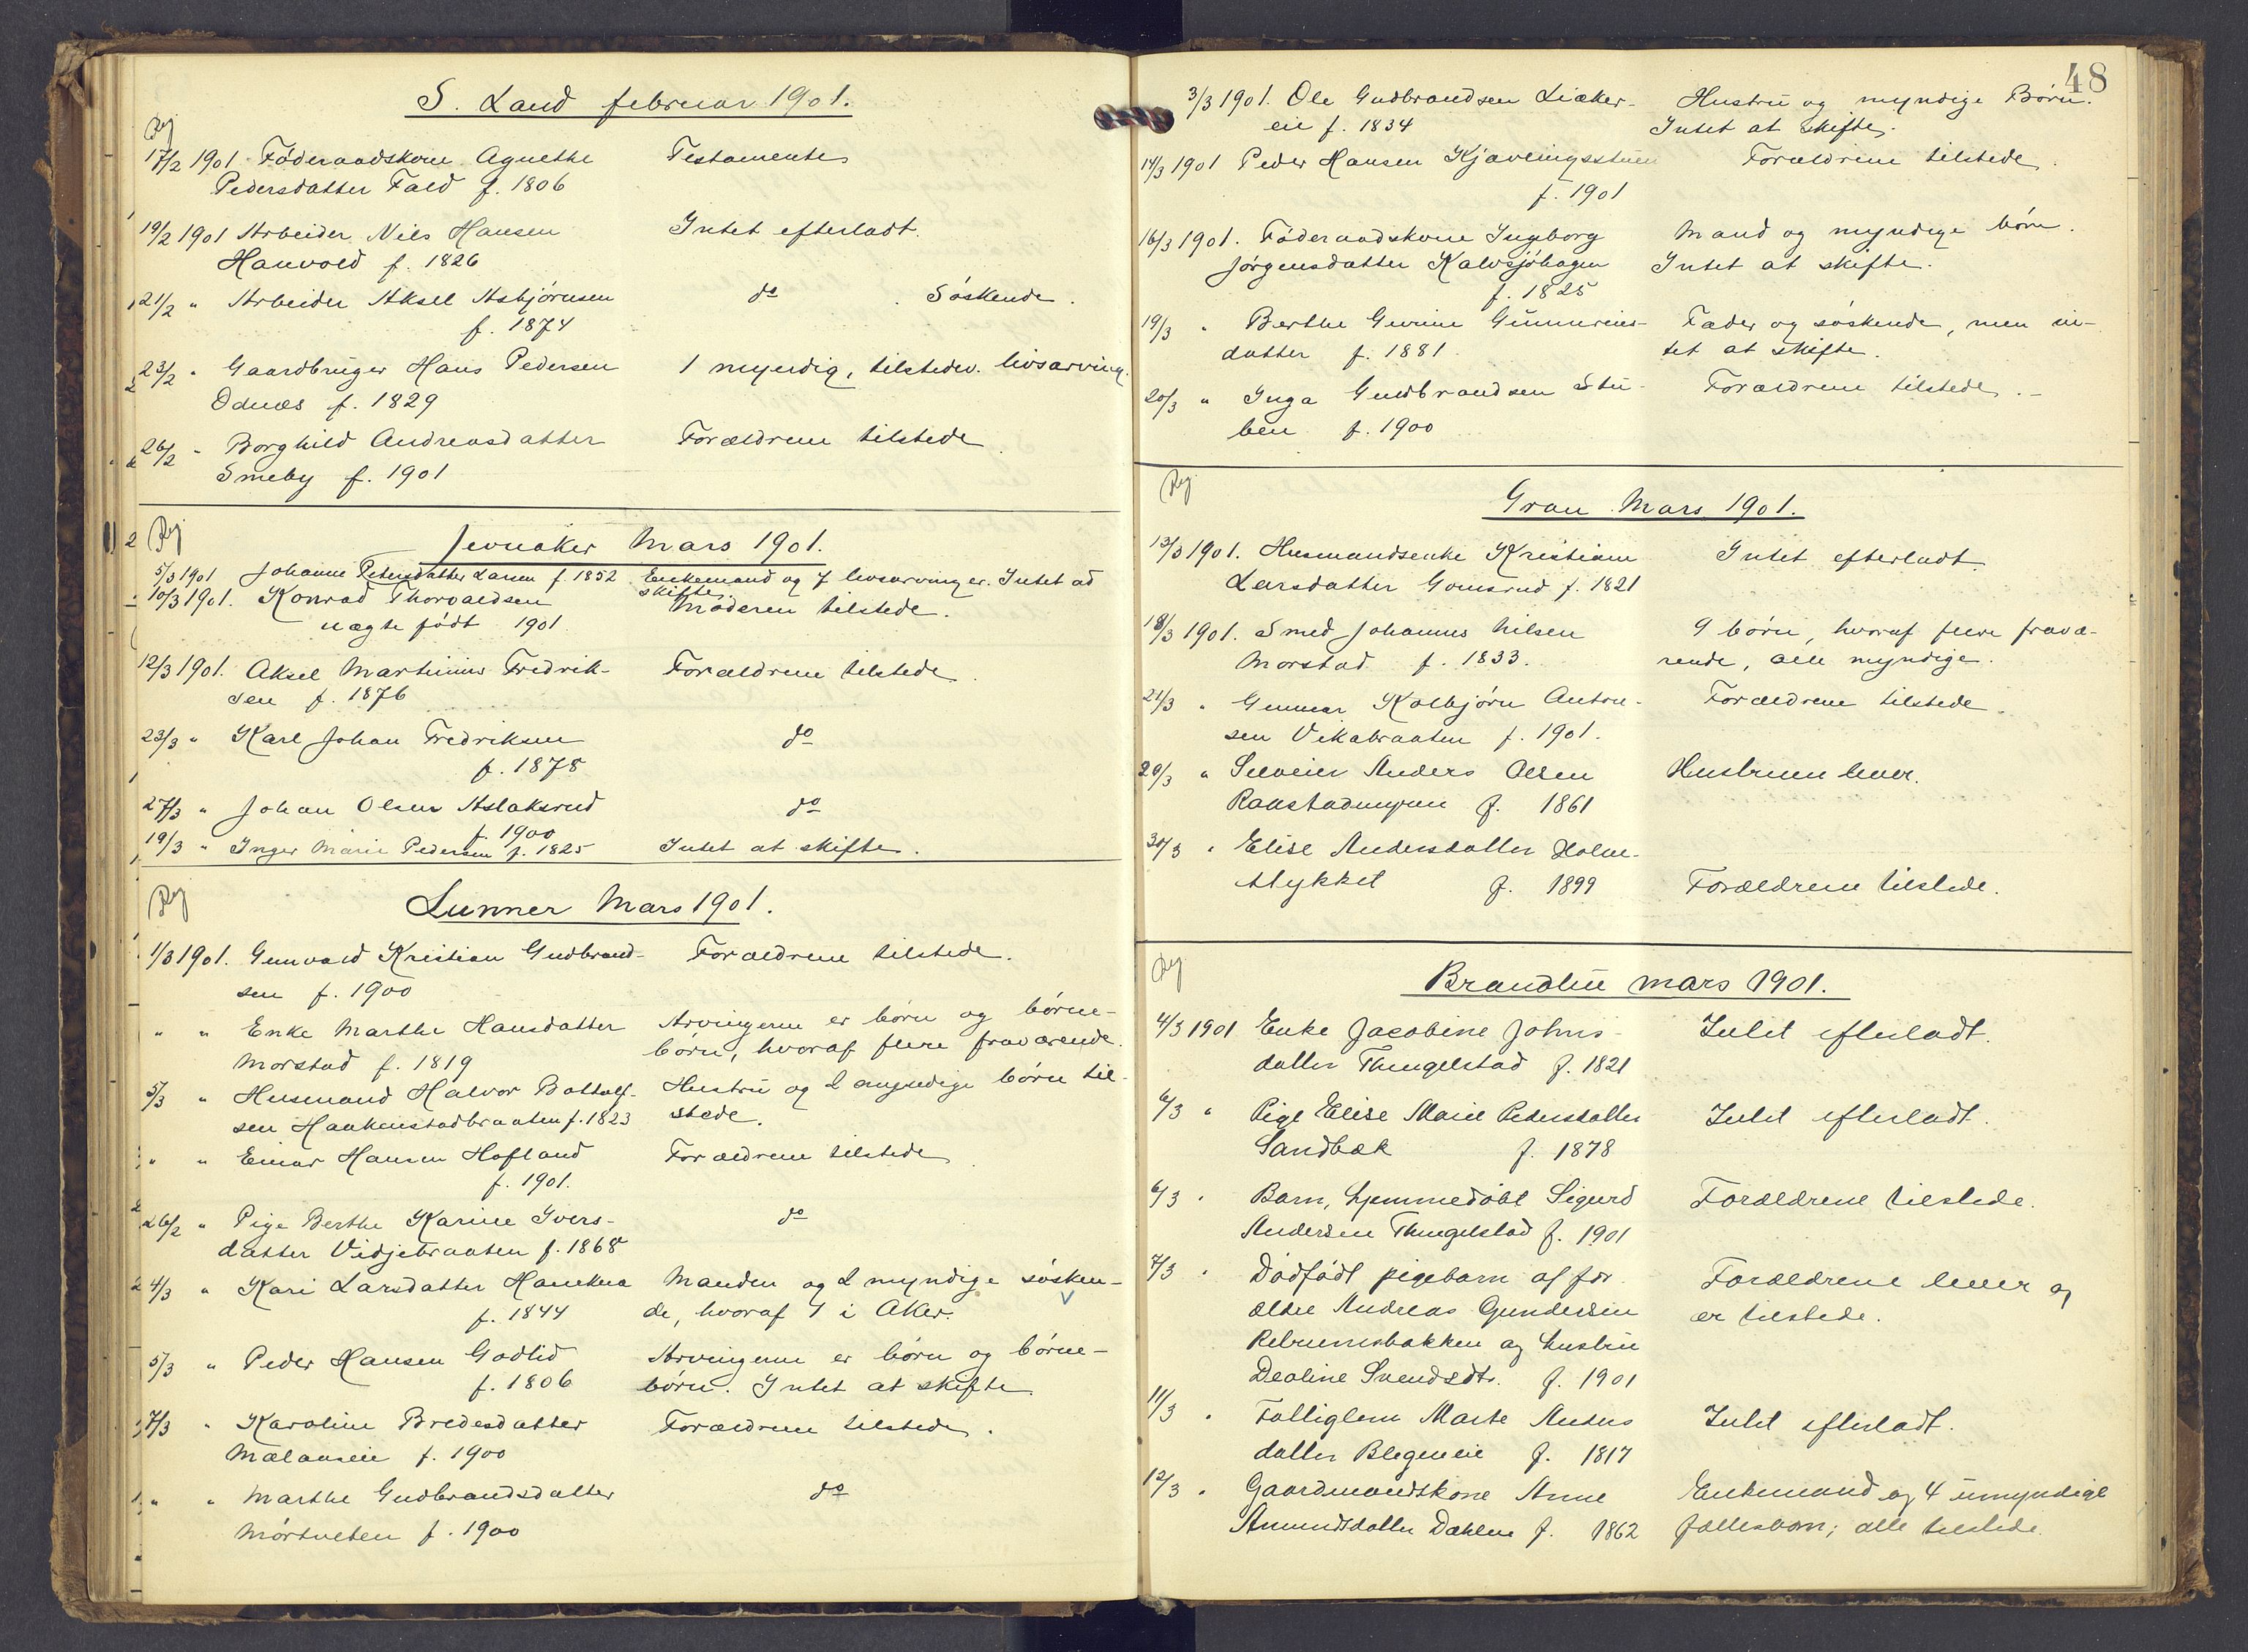 S. Land februar 1901.
Reg
17/2 1901. Föderaadskone Agnethe Testamente
Pedersdatter Fald f. 1806
19/2 1901 Arbeider Niels Hansen Intet efterladt.
Hauvold f. 1826
21/2 " Arbeider Aksel Asbjörnsen do. Söskende.
f. 1874
23/2 " Gaardbruger Hans Pedersen 1 myndig, tilstedev. livsarving.
Odnæs f. 1829
26/2 " Borghild Andreasdatter Forældrene tilstede.
Smeby f. 1901
Reg
Jevnaker Mars 1901.
5/3 1901 Johanne Petersdatter Larsen f. 1852 Enkemand og 7 livsarvinger. Intet at
skifte.
10/3 1901. Konrad Thorvaldsen Moderen tilstede.
uægte födt 1901
12/3 1901. Aksel Martinius Fredrik- Forældrene tilstede.
sen f. 1876
23/3 " Karl Johan Fredriksen do
f. 1878
27/3 " Johan Olsen Aslaksrud do
f. 1900
19/3 " Inger Marie Pedersen f. 1825 Intet at skifte.
Reg
Lunner Mars 1901.
1/3 1901. Gunvald Kristian Gudbrand- Forældrene tilstede.
sen f. 1900
" " Enke Marthe Hansdatter Arvingerne er börn og börne-
Morstad f. 1819 börn, hvoraf flere fraværende.
5/3 " Husmand Halvor Bottolf- Hustru og 2 myndige börn til-
sen Haakenstadbraaten f. 1823 stede.
" " Einar Hansen Hofland Forældrene tilstede.
f. 1901.
26/2 " Pige Berthe Karine Ivers- do
datter Vidjebraaten f. 1868
4/3 " Kari Larsdatter Hanekna Manden og 2 myndige sösken-
f. 1844 de, hvoraf 1 i Aker.
5/3 " Peder Hansen Godlid Arvingerne er börn og börne-
f. 1806 börn. Intet at skifte
7/3 " Karoline Bredesdatter Forældrene tilstede.
Mælauseie f. 1900
" " Marthe Gudbrandsdatter do
Mörtveten f. 1900
48
3/3 1901. Ole Gudbrandsen Liæker- Hustru og myndige Börn.
eie f. 1834 Intet at skifte.
14/3 1901 Peder Hansen Kjævlingsstuen Forældrene tilstede.
f. 1901
16/3 1901. Föderaadskone Ingeborg Mand og myndige börn.
Jörgensdatter Kalvsjöhagen Intet at skifte.
f. 1825
19/3 " Berthe Gurine Gunnerius- Fader og söskende, men in-
datter f. 1881. tet at skifte.
20/3 " Inga Gudbrandsen Stu- Forældrene tilstede.
ben f. 1900
Reg.
Gran Mars 1901.
13/3 1901. Husmandsenke Kristiane Intet efterladt.
Larsdatter Gomsrud f. 1821
18/3 1901. Smed Johannes Nilsen 9 börn, hvoraf flere fravæ-
Morstad f. 1833. rende, alle myndige.
21/3 " Gunnar Kolbjörn Anton- Forældrene tilstede.
sen Vikabraaten f. 1901.
20/3 " Selveier Anders Olsen Hustruen lever.
Raastadmyren f. 1861
30/3 " Elise Andersdatter Holme-
stykket f. 1899 Forældrene tilstede.
Reg
Brandbu mars 1901.
4/3 1901 Enke Jacobine Johns- Intet efterladt.
datter Thingelstad f. 1821
6/3 " Pige Elise Marie Pedersdatter Intet efterladt.
Sandbæk f. 1878
6/3 " Barn, hjemmedöbt Sigurd Forældrene tilstede.
Andersen Thingelstad f. 1901
7/3 " Dödfödt pigebarn af for- Forældrene lever og
ældre Andreas Gundersen er tilstede.
Rebrumsbakken og hustru
Deoline Svendsdtr. f. 1901
11/3 " Fattiglem Marte Anders Intet efterladt.
datter Blegeneie f. 1817
12/3 " Gaardmandskone Anne Enkemand og 4 umyndige
Amundsdatter Dæhlen f. 1862 fællesbarn; alle tilstede.